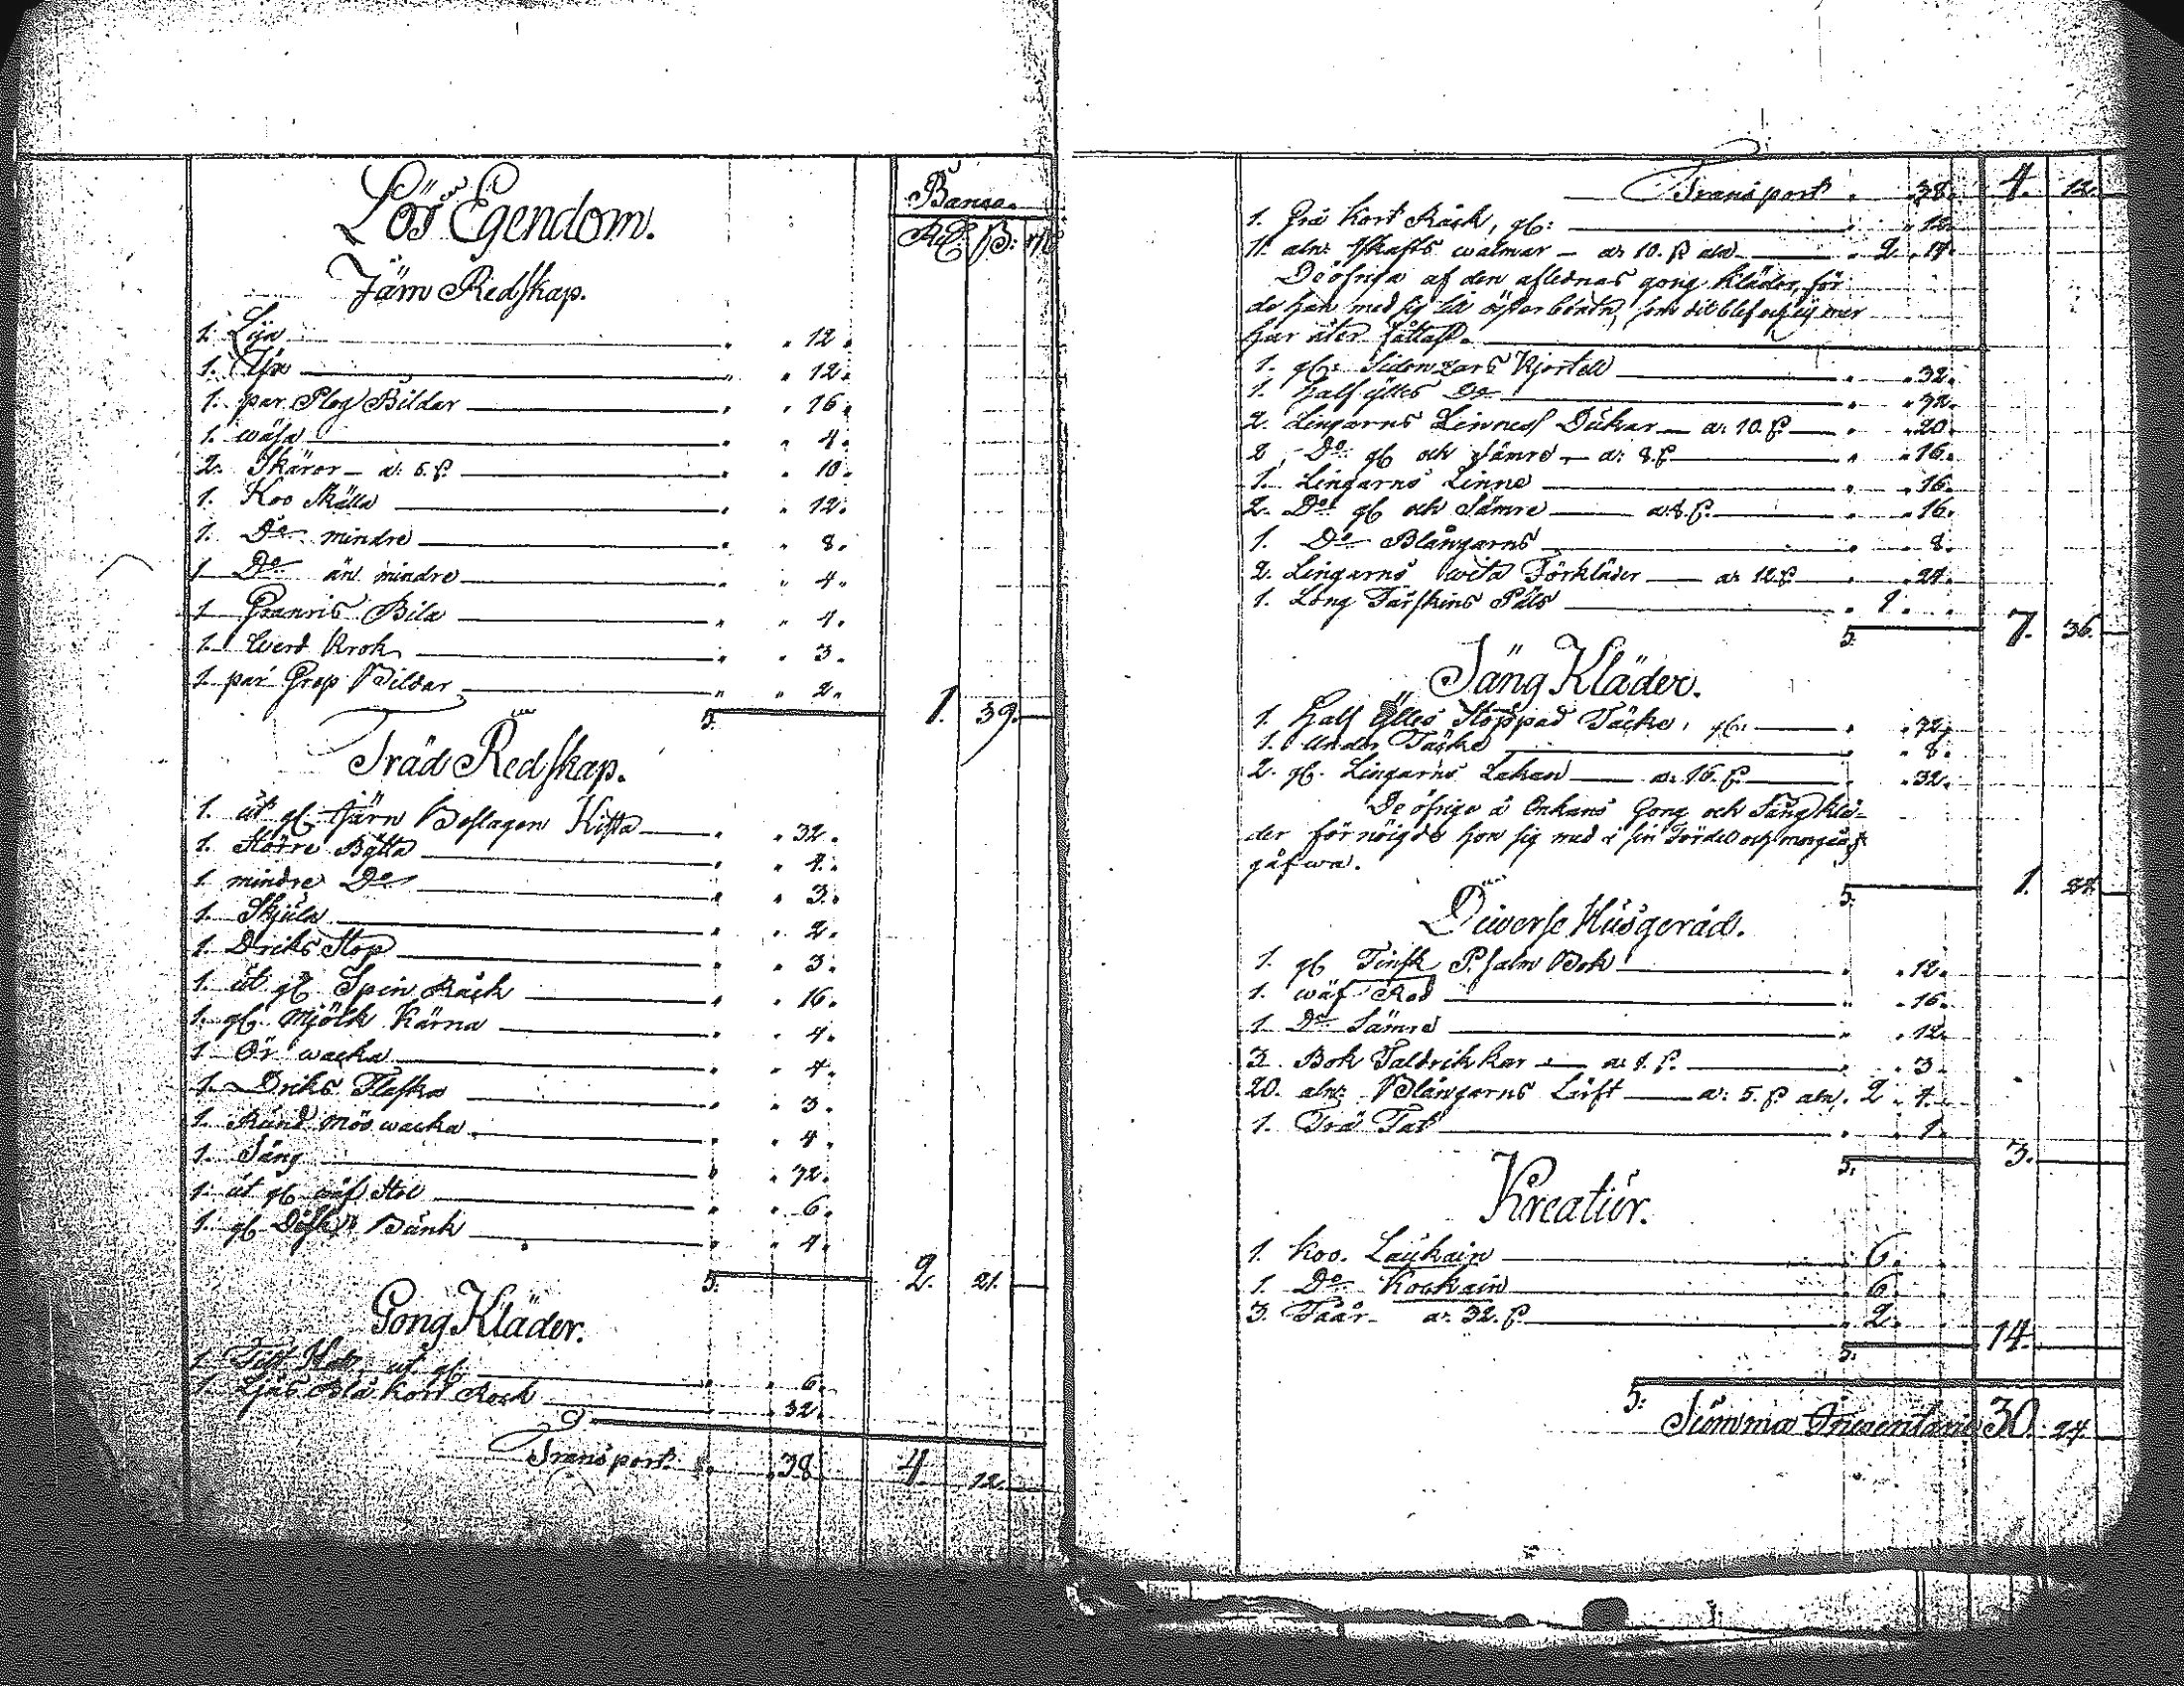 Lös Egendom.
Banco.
Rd: ß: rs
Järn Redskap.
1. Lija " " 12.
1. Yxa " " 12.
1. par Plog Bildar " " 16.
1. wäfa " " 4.
2. Skäror – a: 5. ß " " 10.
1. Koo Skälla " " 12.
1. Do mindre " " 8.
1 Do än mindre " " 4.
1 Granris Bila " " 4.
1. Krok " " 3.
1. par Grep Bildar " " 2.
S. 1. 39.
Träd Redskap.
1. ut gl Järn Beslagen Kista " " 32.
1. Större Bytta " " 4.
1. mindre Do " " 3.
1. Skjula " " 2.
1. Driks Stop " " 3.
1. ut gl Spin Råck " " 16.
1. gl. Mjölk Kärna " " 4.
1. Ör wacka " " 4.
1. Driks Flaska " " 3.
1. Rund wacka " " 4.
1. Säng " " 32.
1. ut gl wäf Stol " " 6.
1. gl Bänk " " 4.
S. 2. 21.
Gong Kläder.
1. Hatt, ut gl. " " 6.
1. Ljus Blå kort Rock " " 32.
Transport " " 38 4 12.
Transport " " 38. 4. 12.
1. Grå Kort Råck, gl: " " 12.
11. aln: Skafts walmar – a: 10. ß aln " 2. 14.
De öfriga af den aflednas gong kläder, för
de han med sig till som dit blef och ej mer
har åter fåttas.
1. gl: Kjortell " " 32.
1. half ylles Do " " 32.
2. Lingarns Linnes Dukar – a: 10. ß " " 20.
2. Do gl och sämre – a: 8. ß " " 16.
1. Lingarns Linne " " 16.
2. Do gl och Sämre a: 8. ß. " " 16.
1. Do Blångarns " " 8.
2. Lingarns wita Förkläder a: 12 ß " " 24.
1. Long Fårskins Päls " 1. "
S. 7. 36.
Säng Kläder.
1. Half Ylles Stoppad Täcke, gl: " " 32.
1. Under Täcke " " 8.
2. gl. Lingarns Lakan a: 16. ß. " " 32.
De öfriga å Enkans Gong och Säng klä-
der förnöigde hon sig med i sin Fördel och morgon
gåfwa.
S. 1. 24.
Diverse Husgeråd.
1. gl Finsk Psalm Bok " " 12.
1. wäf Rod " " 16.
1 Do Sämre " " 12.
3. Bok Taldrikkar – a: 1. ß. " " 3.
20. aln: Blångarns Lärft a: 5. ß aln, 2 4.
1. Trä Fat " " 1.
S. 3.
Kreatur.
1. Koo. Laukain " 6.
1. Do Koskain " 6.
3. Fåår – a: 32. ß " 2.
S. 14.
S:
Summa Inventarie 30. 24